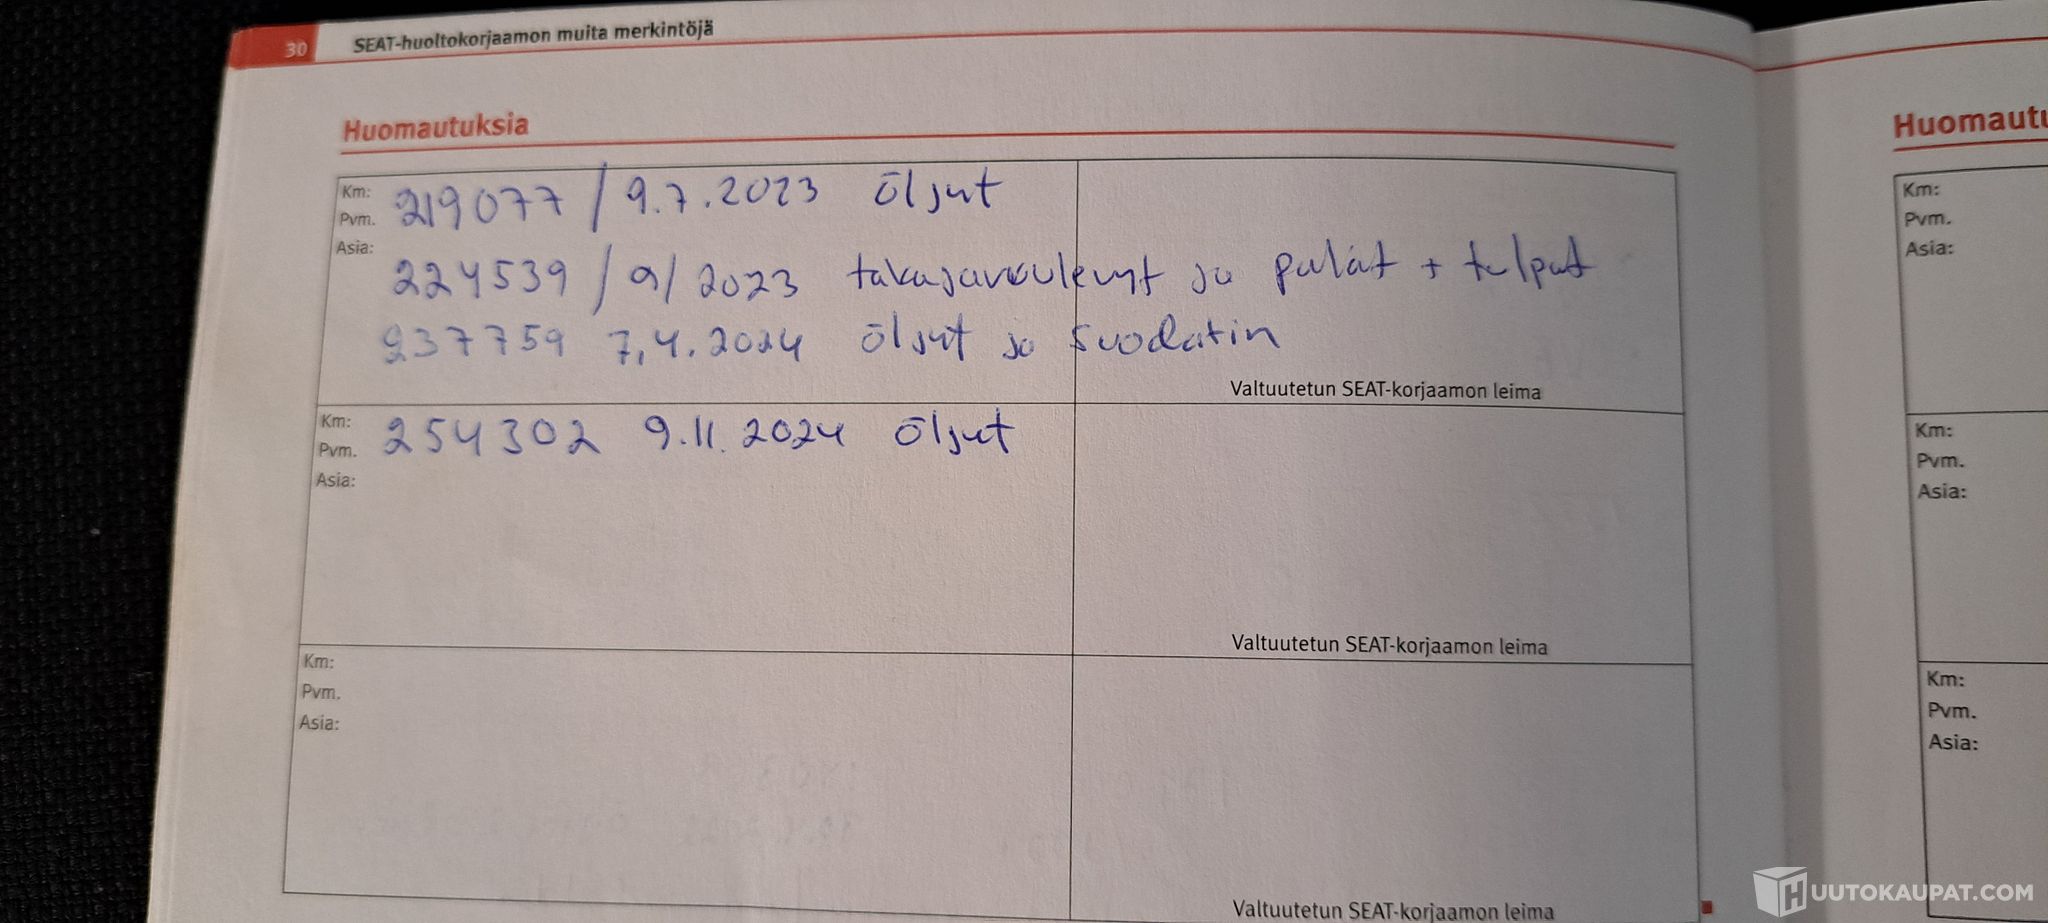 30 SEAT-huoltokorjaamon muita merkintöjä
Huomautuksia
Km: 219077 / 9.7.2023 öljyt
Pvm.
Asia:
224539 / 9/2023 takajarrulevyt ja palat + tulpat
237759 7.4.2024 öljyt ja suodatin
Valtuutetun SEAT-korjaamon leima
Km: 254302 9.11.2024 öljyt
Pvm.
Asia:
Valtuutetun SEAT-korjaamon leima
Km:
Pvm.
Asia:
Valtuutetun SEAT-korjaamon leima
Km:
Pvm.
Asia:
Km:
Pvm.
Asia:
Km:
Pvm.
Asia:
HUUTOKAUPAT.COM